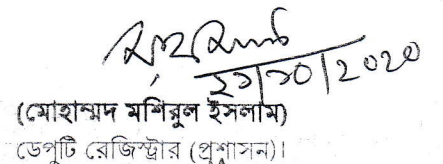 ২১/১০/২০২০
(মোহাম্মদ মশিরুল ইসলাম)
ডেপুটি রেজিস্ট্রার (প্রশাসন)।